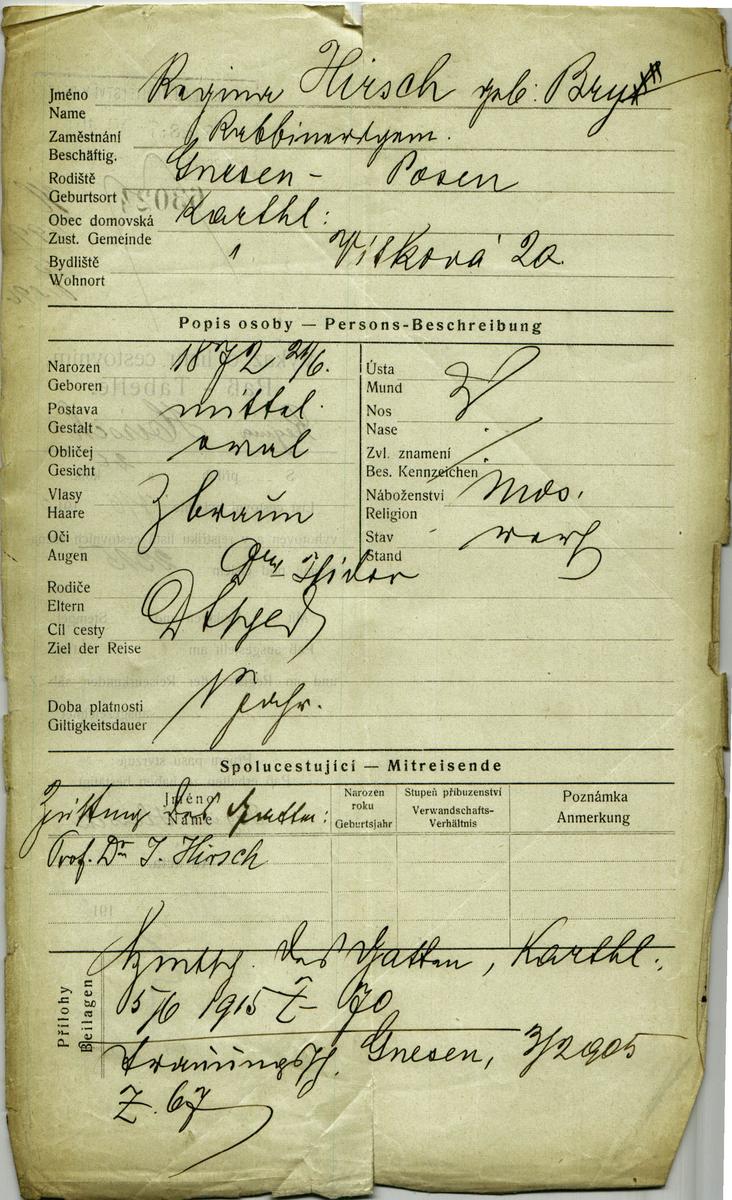 Jméno Regina Hirsch geb: Bry
Name
Zaměstnání Rabbinersgem.
Beschäftig.
Rodiště Gnesen - Posen
Geburtsort
Obec domovská Karthl:
Zust. Gemeinde
Bydliště " Vítkova 20
Wohnort
Popis osoby — Persons-Beschreibung
Narozen 1872 21/6.
Geboren
Postava mittel.
Gestalt
Obličej oval
Gesicht
Vlasy braun
Haare
Oči
Augen
Ústa
Mund
Nos
Nase
Zvl. znamení
Bes. Kennzeichen
Náboženství mos.
Religion
Stav verh
Stand
Rodiče Isidor
Eltern
Cíl cesty
Ziel der Reise
Doba platnosti 1 Jahr.
Giltigkeitsdauer
Spolucestující — Mitreisende
Jméno
Name
Narozen roku
Geburtsjahr
Stupeň příbuzenství
Verwandschafts-Verhältnis
Poznámka
Anmerkung
des Gatten:
Prof. Dr J. Hirsch
Přílohy
Beilagen
des Gatten, Karthl:
5/6 1915 Z- 70
Trauungssch. Gnesen, 3/2 905
Z. 67